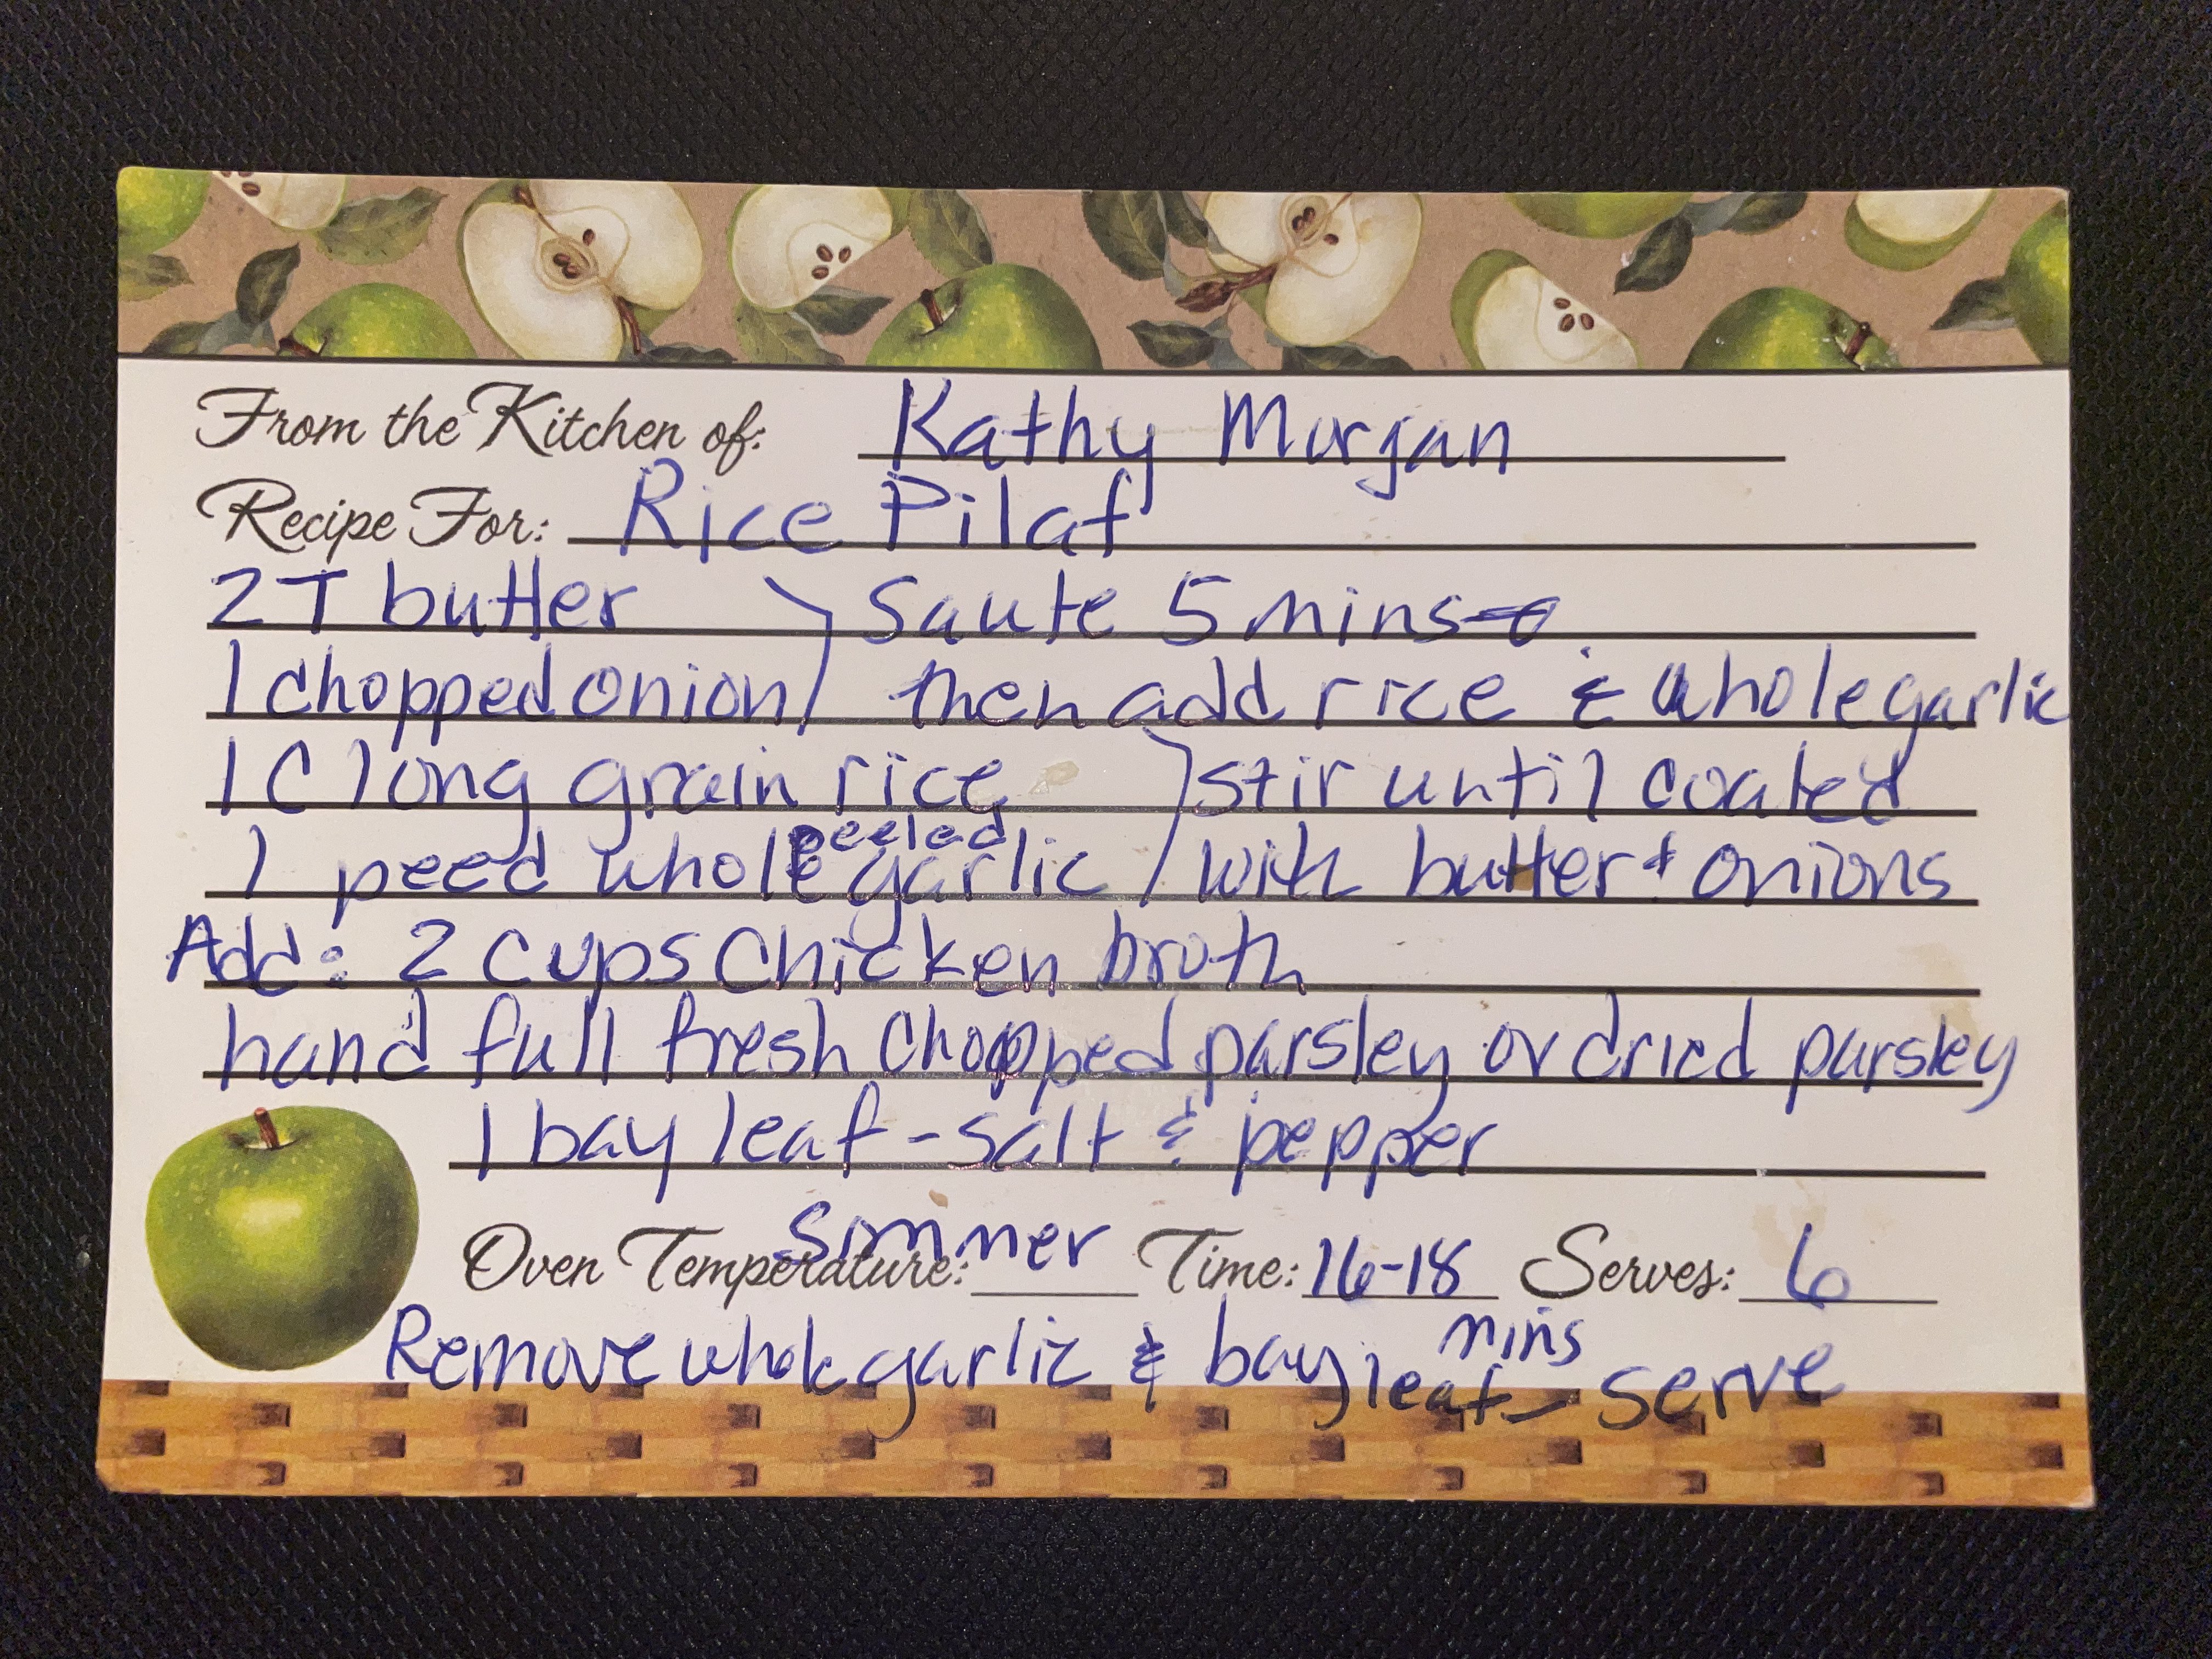 From the Kitchen of: Kathy Morgan
Recipe For: Rice Pilaf
2 T butter Saute 5 mins
1 chopped onion then add rice & whole garlic
1 C long grain rice stir until coated
peeled
1 peed whole garlic with butter & onions
Add: 2 cups chicken broth
hand full fresh chopped parsley or dried parsley
1 bay leaf - salt & pepper
Simmer
Oven Temperature: Time: 16-18 Serves: 6
mins
Remove whole garlic & bay leaf - serve